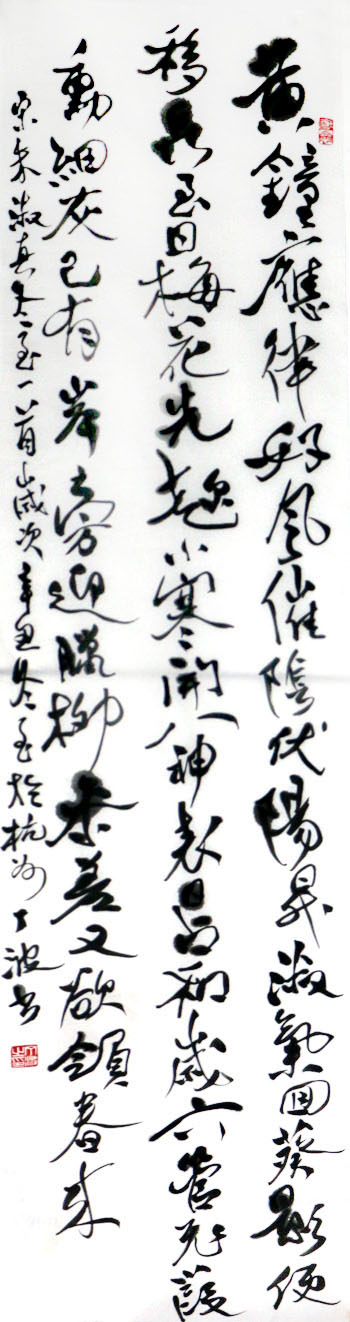 黄鐘應律好風催陰伏陽昇淑氣回葵影便
移長至日梅花先趁小寒開八神表日占和歲六管飛葭
動細灰已有岸旁迎臘柳參差又欲領春來
宋朱淑真冬至一首歲次辛丑冬至於杭州丁波書